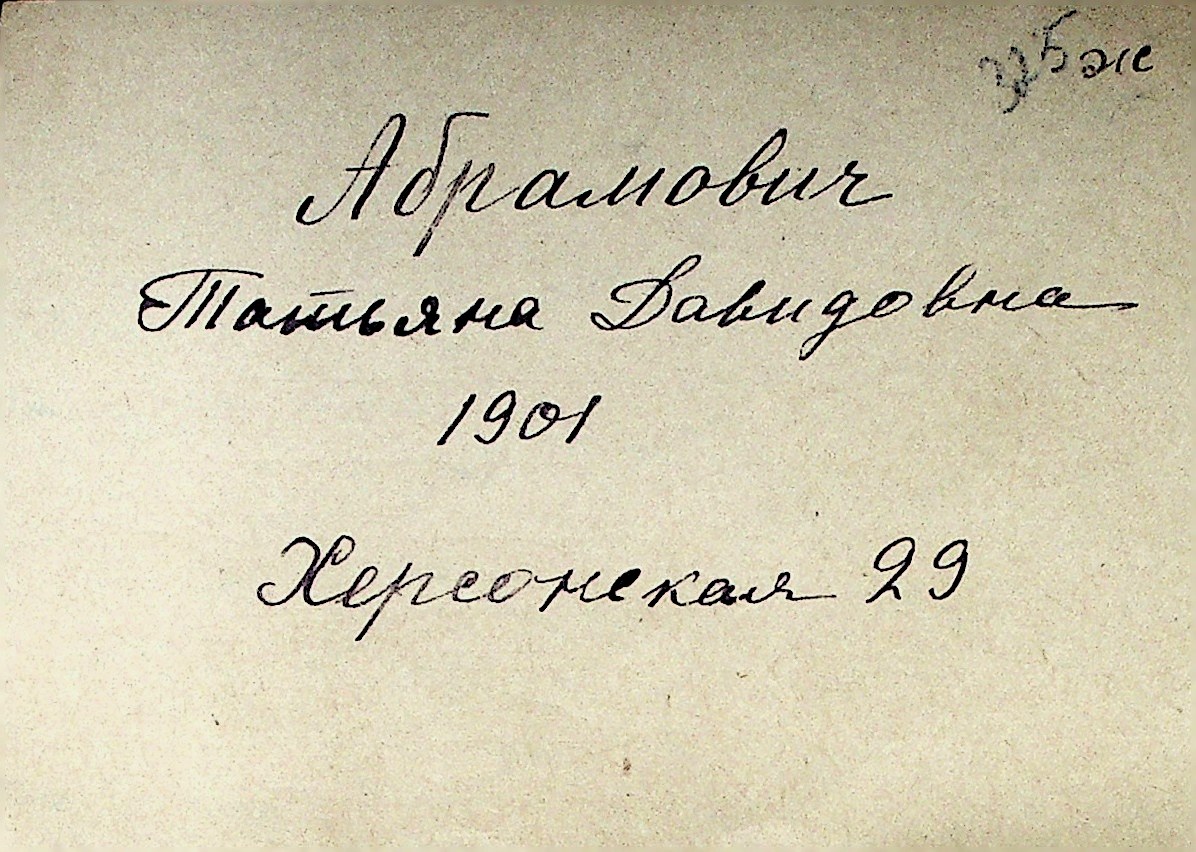 325ж
Абрамович
Татьяна Давидовна
1901
Херсонская 29